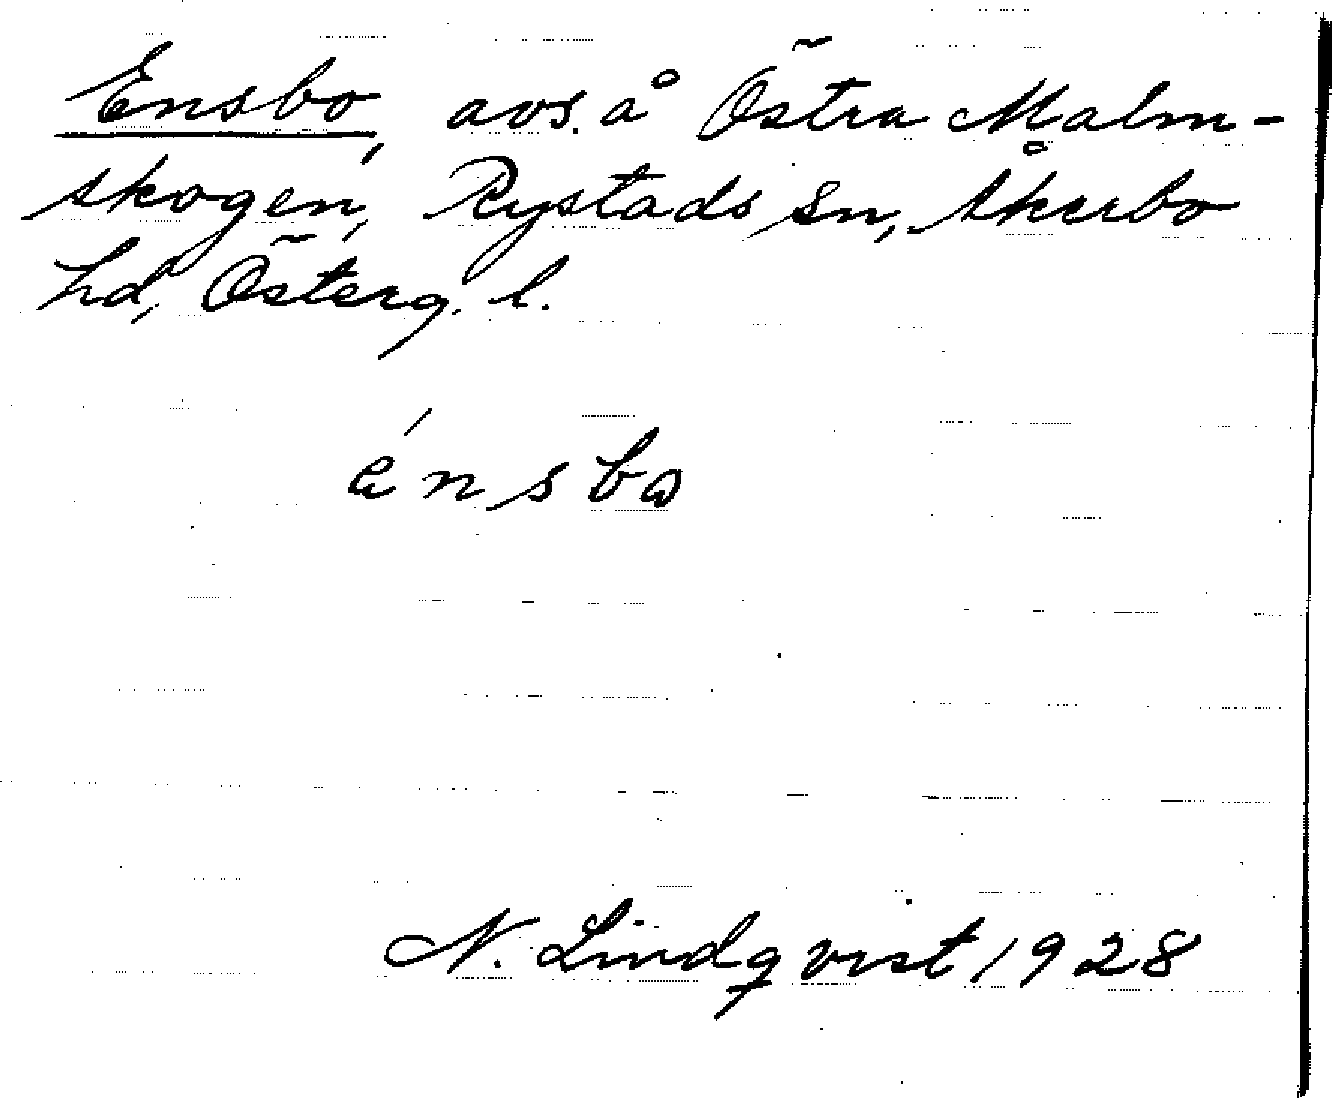 Ensbo, avs. å Östra Malm-
skogen, Rystads sn, Åkerbo
hd, Österg. l.
énsbo
N. Lindqvist 1928